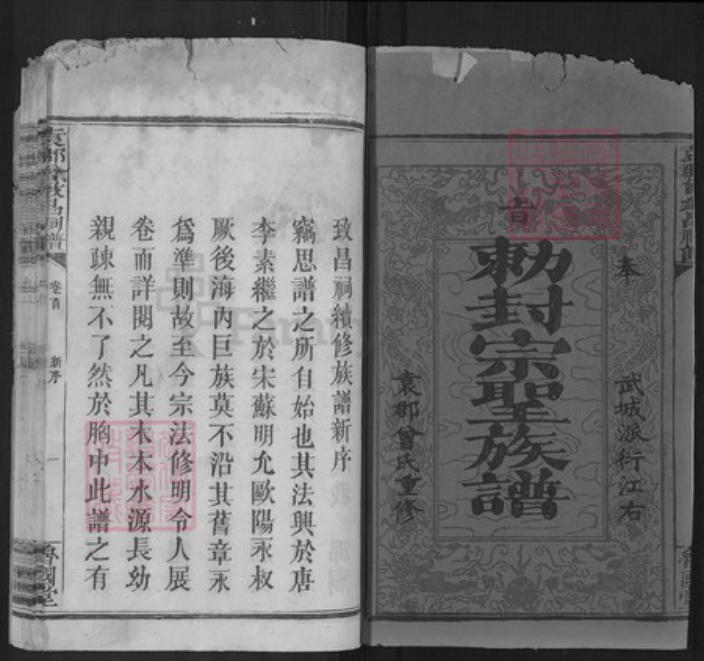 奉
旨
敕封宗聖族譜
武城派衍江右
袁郡曾氏重修
致昌祠續修族譜新序
竊思譜之所自始也其法興於唐
李素繼之於宋蘇明允歐陽永叔
厥後海內巨族莫不沿其舊章永
爲準則故至今宗法修明令人展
卷而詳閱之凡其木本水源長幼
親疎無不了然於胸中此譜之有
卷首
新序
一
魯國堂